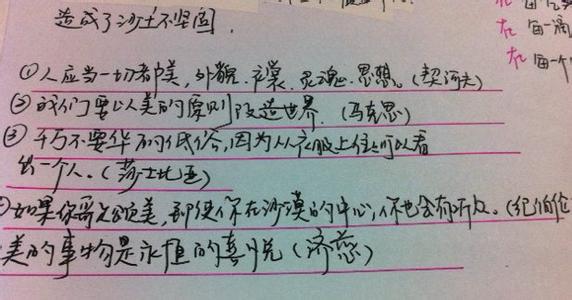 造成了沙土不坚固.
在
在 每一滴
在 每一个
①人应当一切都美,外貌.衣裳.灵魂.思想。(契河夫)
②我们要以美的原则改造世界.(马克思)
③千万不要华而低俗,因为从衣服上往往可以看
出一个人。(莎士比亚)
如果你歌颂美,即使你在沙漠的中心,你也会有听众。(纪伯伦
美的事物是永恒的喜悦(济慈)